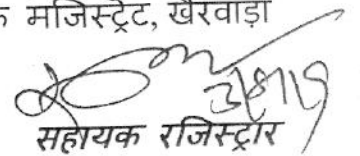 क मजिस्ट्रेट, खैरवाड़ा
सहायक रजिस्ट्रार